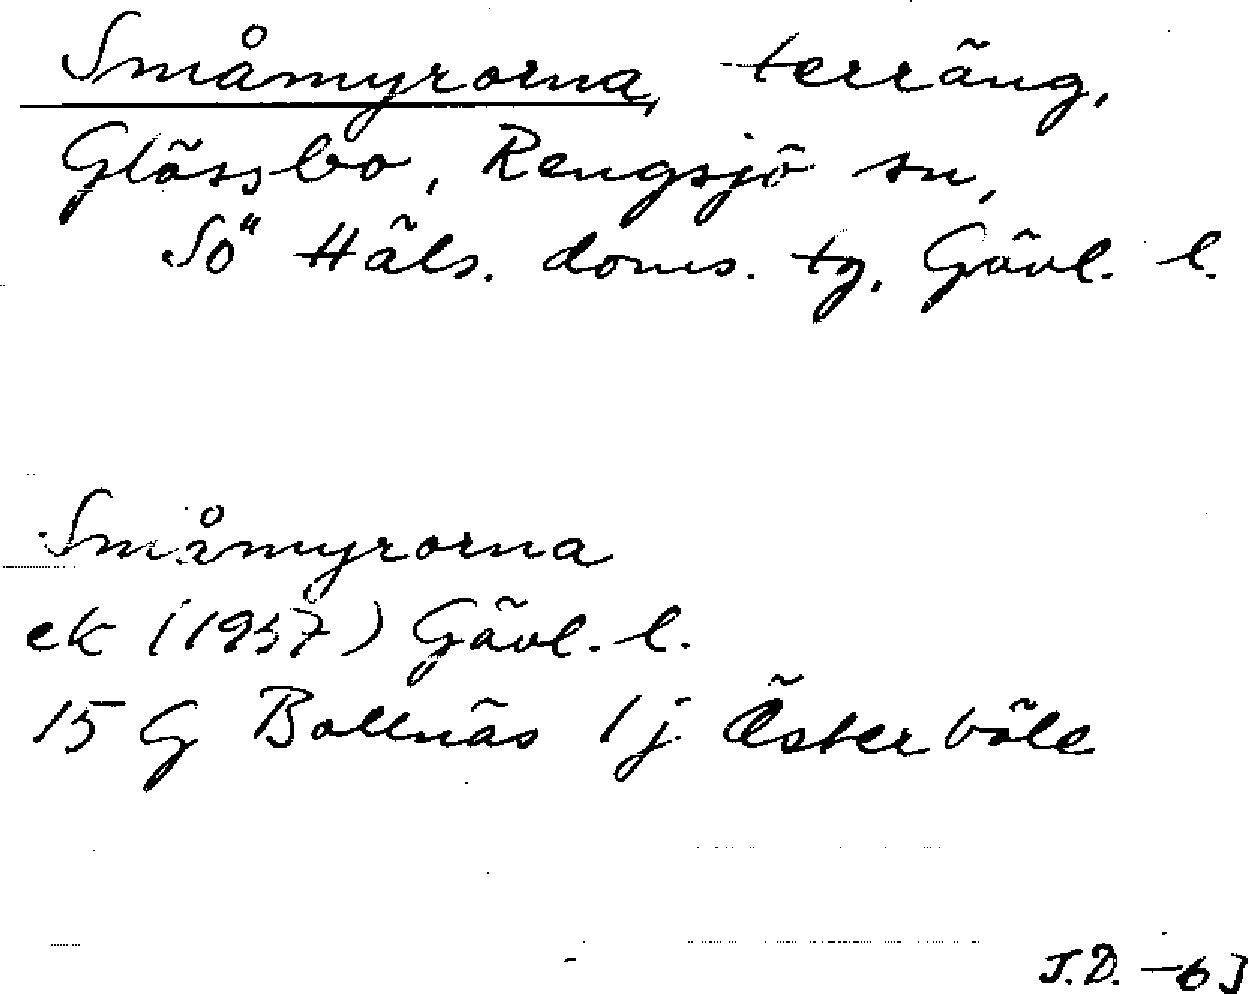 Småmyrorna, terräng,
Glössbo, Rengsjö sn,
Sö Häls. doms. tg, Gävl. l.
Småmyrorna
ek (1957) Gävl. l.
15 G Bollnäs 1 j Österböle
J.D. -63